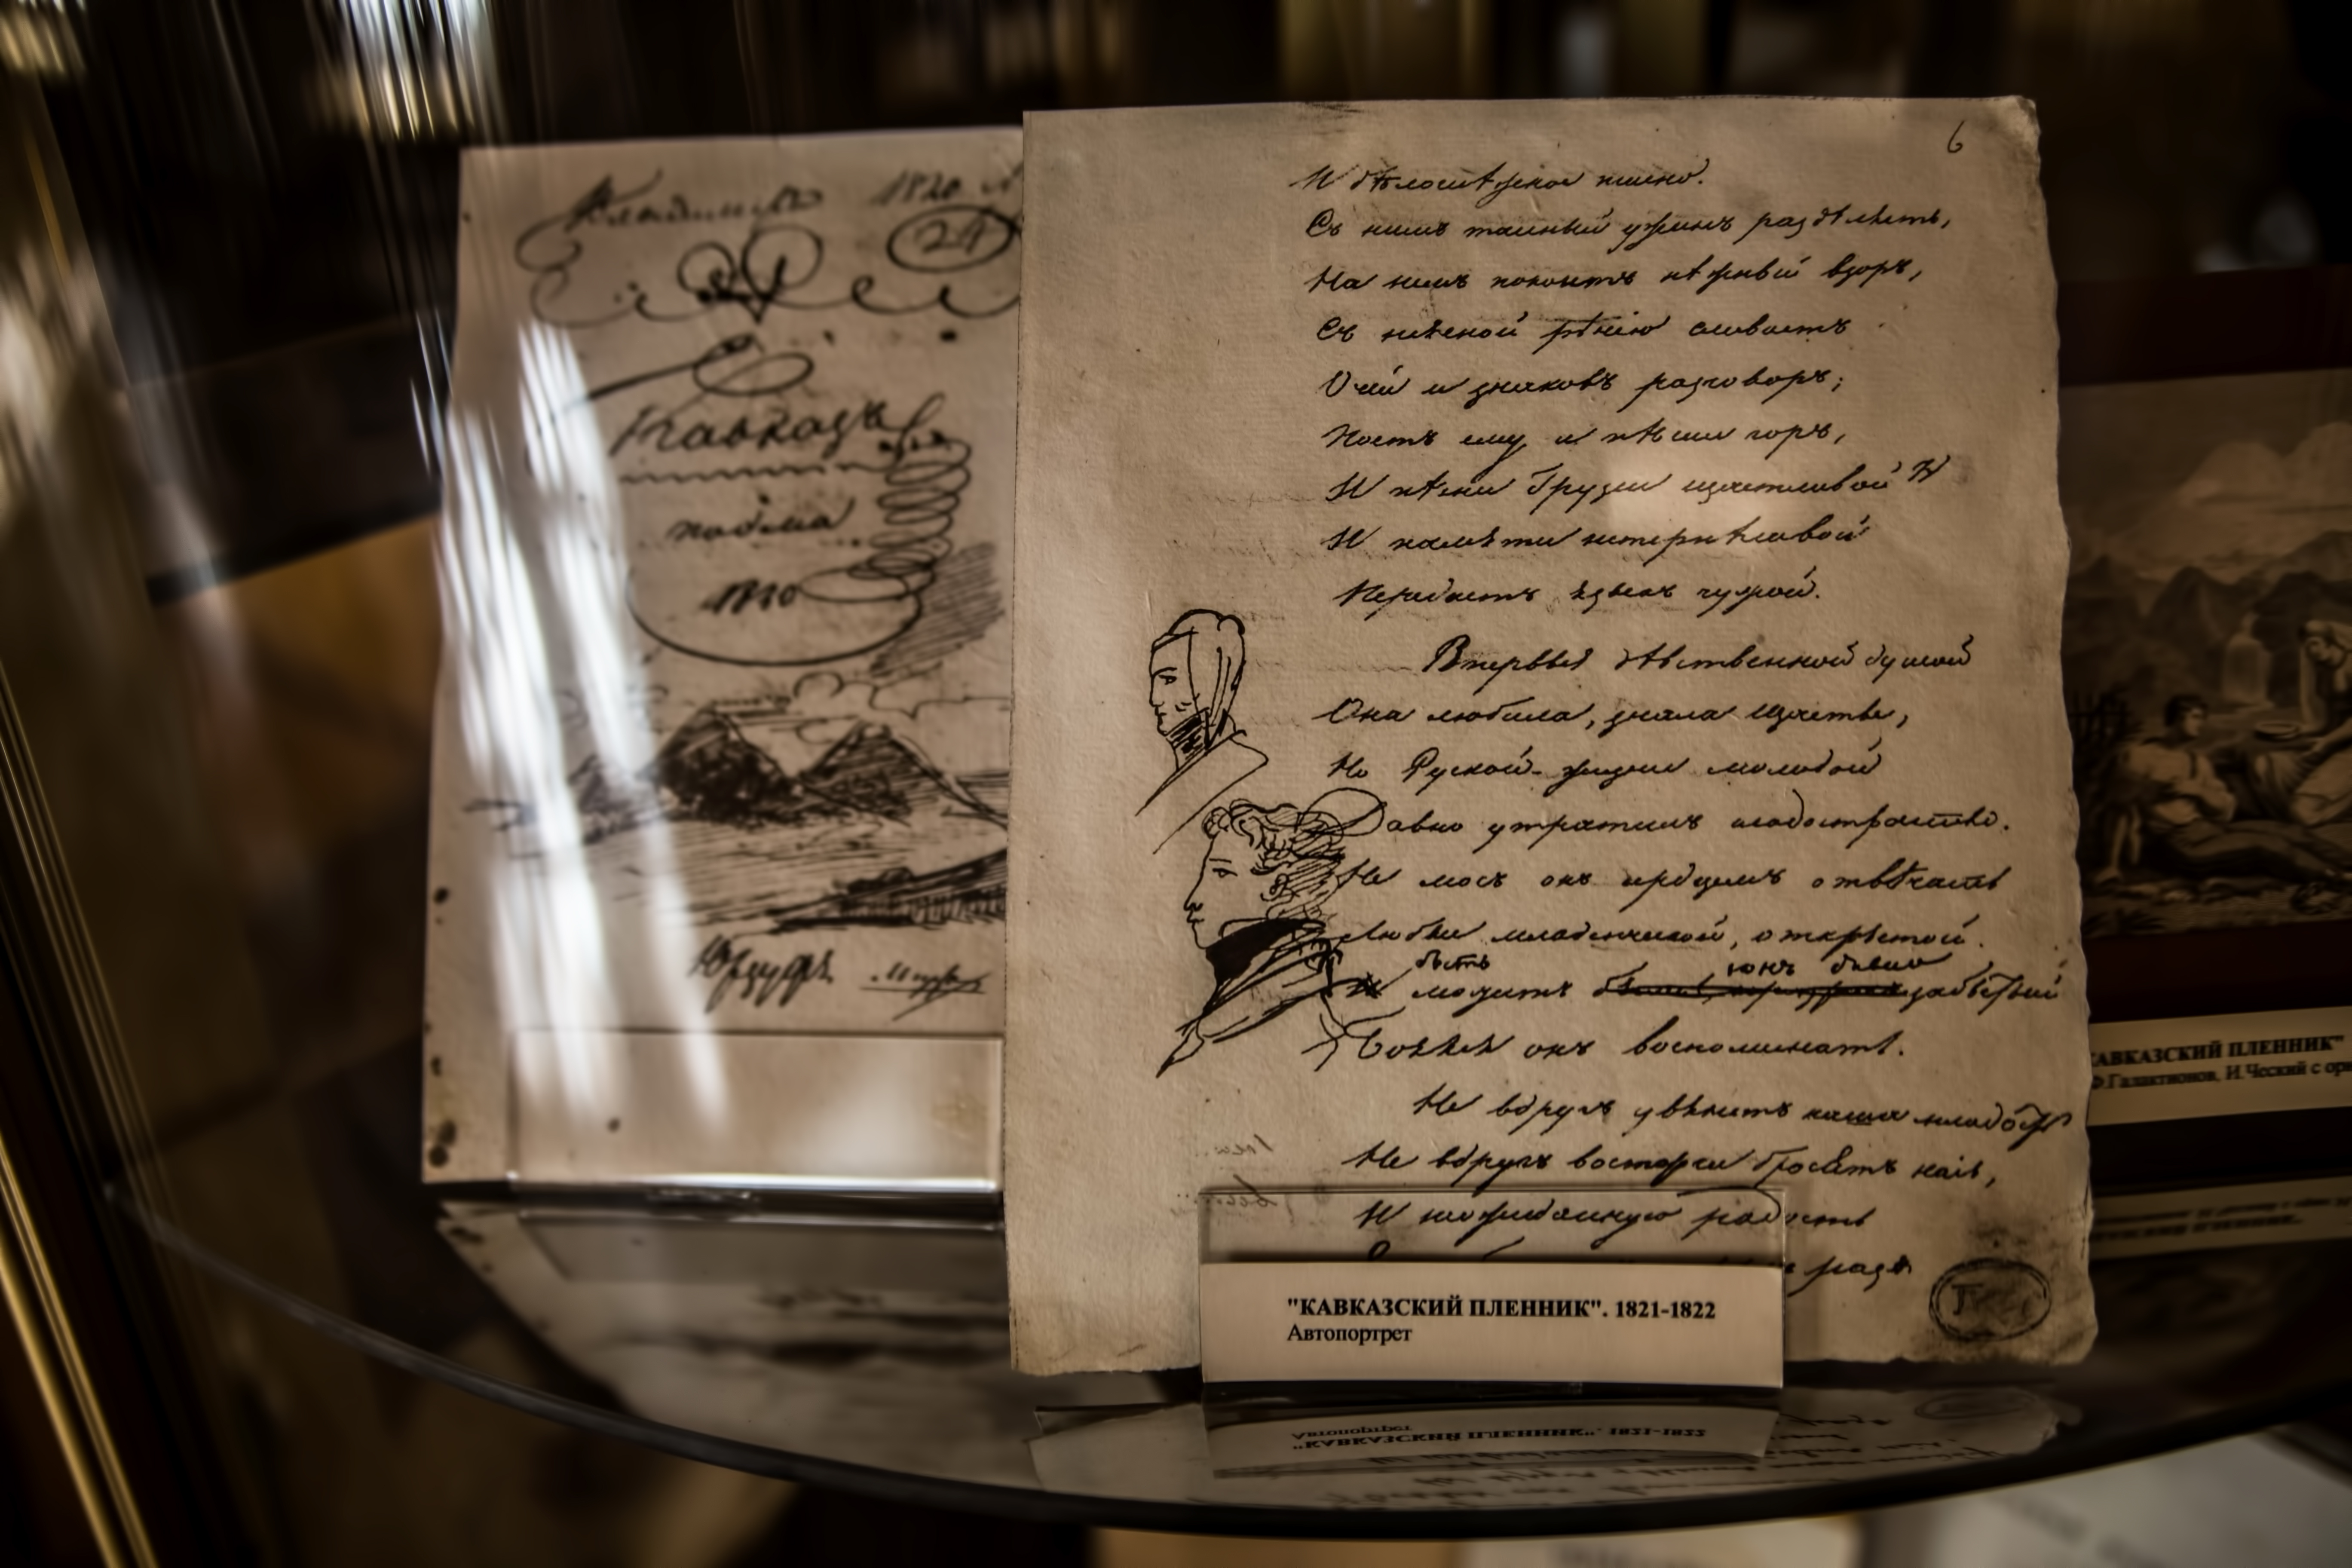 1820
29
Кавказъ
поэма
1820
Юрзуфъ
6
И бѣлоснѣжное пшено.
Съ нимъ тайный ужинъ раздѣляетъ,
На немъ покоитъ нѣжный взоръ,
Съ неясной рѣчію сливаетъ
Очей и знаковъ разговоръ;
Поетъ ему и пѣсни горъ,
И пѣсни Грузіи щастливой
И памяти нетерпѣливой
Передаетъ языкъ чужой.
Впервые дѣвственной душой
Она любила, знала щастье,
Но Руской жизни молодой
Давно утратилъ сладострастье.
Не могъ онъ сердцемъ отвѣчать
Любви младенческой, открытой.
быть
сонъ
можетъ забытый
Боялся онъ воспоминать.
Не вдругъ увянетъ наша младость
Не вдругъ восторги бросятъ насъ,
И неожиданную радость
разъ
"КАВКАЗСКИЙ ПЛЕННИК". 1821-1822
Автопортрет
КАВКАЗСКИЙ ПЛЕННИК"
Ф.Галактионов, И.Ческий с ори